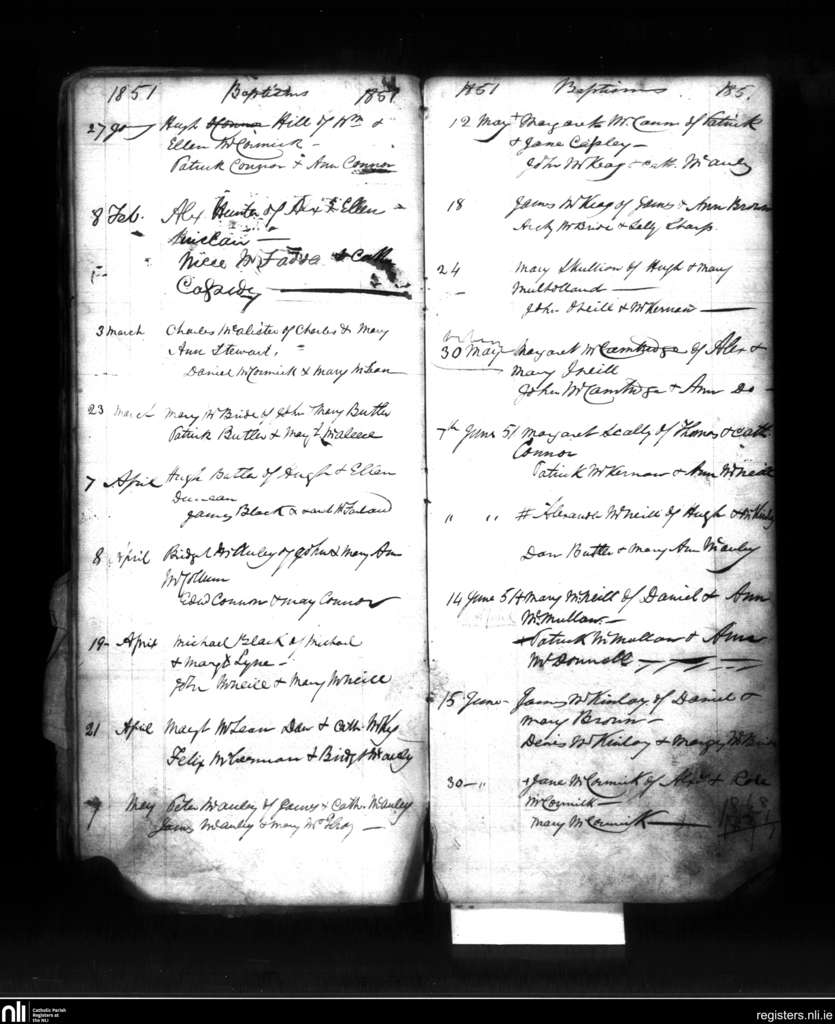 1851 Baptisms 1851
27 Jany Hugh Connor Hill of Wm &
Ellen McCormick -
Patrick Connor & Ann Connor
8 Feb. Alex Hunter of Alex & Ellen
Sinclair -
Cath
Cassidy
3 March Charles McAlister of Charles & Mary
Ann Stewart.
Daniel McCormick & Mary McLean
23 March Mary McBride of John & Mary Butler
Patrick Butler & Margt
7 April Hugh Butler of Hugh & Ellen
Duncan
James Black &
8 April Bridget of John & Mary Ann
McCollum
Edwd Connor & Mary Connor
19 - April Michael Black of Michael
& Margt Lyne -
John McNeill & Mary McNeill
21 April Margt McLean Dan & Cath.
Felix & Bridgt McAuley
9 May Peter McAuley of James & Cath. McAuley
James McAuley & Mary McElroy -
1851 Baptisms 185.
12 May Margaret McCann of Patrick
& Jane -
John McKeag & Cath. McAuley
18 James McKeag of James & Ann Brown
Archy McBride & Sally Sharp.
24 Mary Skullion of Hugh & Mary
Mulholland -
John O'Neill & McKernan -
30 May Margaret McCambridge of Alex &
Mary O'Neill
John McCambridge & Ann Do -
7th June 51 Margaret Scally of Thomas & Cath.
Connor
Patrick McKernan & Ann McNeill
" " # Alexander McNeill of Hugh &
Dan Butler & Mary Ann McAuley
14 June 51 # Mary McNeill of Daniel & Ann
McMullan. -
+ Patrick McMullan & Ann
McDonnell
15 June - James McKinlay of Daniel &
Mary Brown -
Denis McKinlay & Margt McBride
30 - " + Jane McCormick of Alexr & Rose
McCormick -
Mary McCormick -
nli
Catholic Parish
Registers at
the NLI
registers.nli.ie